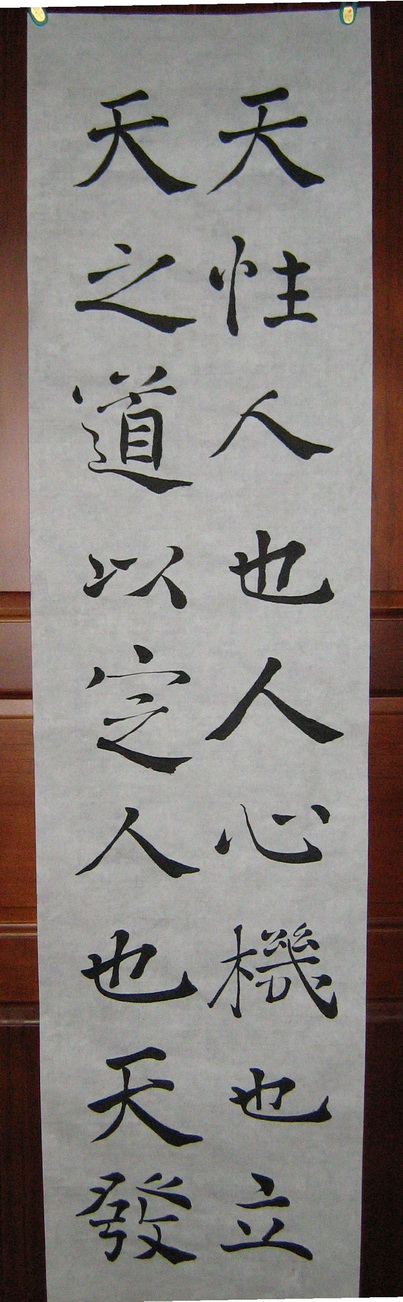 天性人也人心機也立
天之道以定人也天發